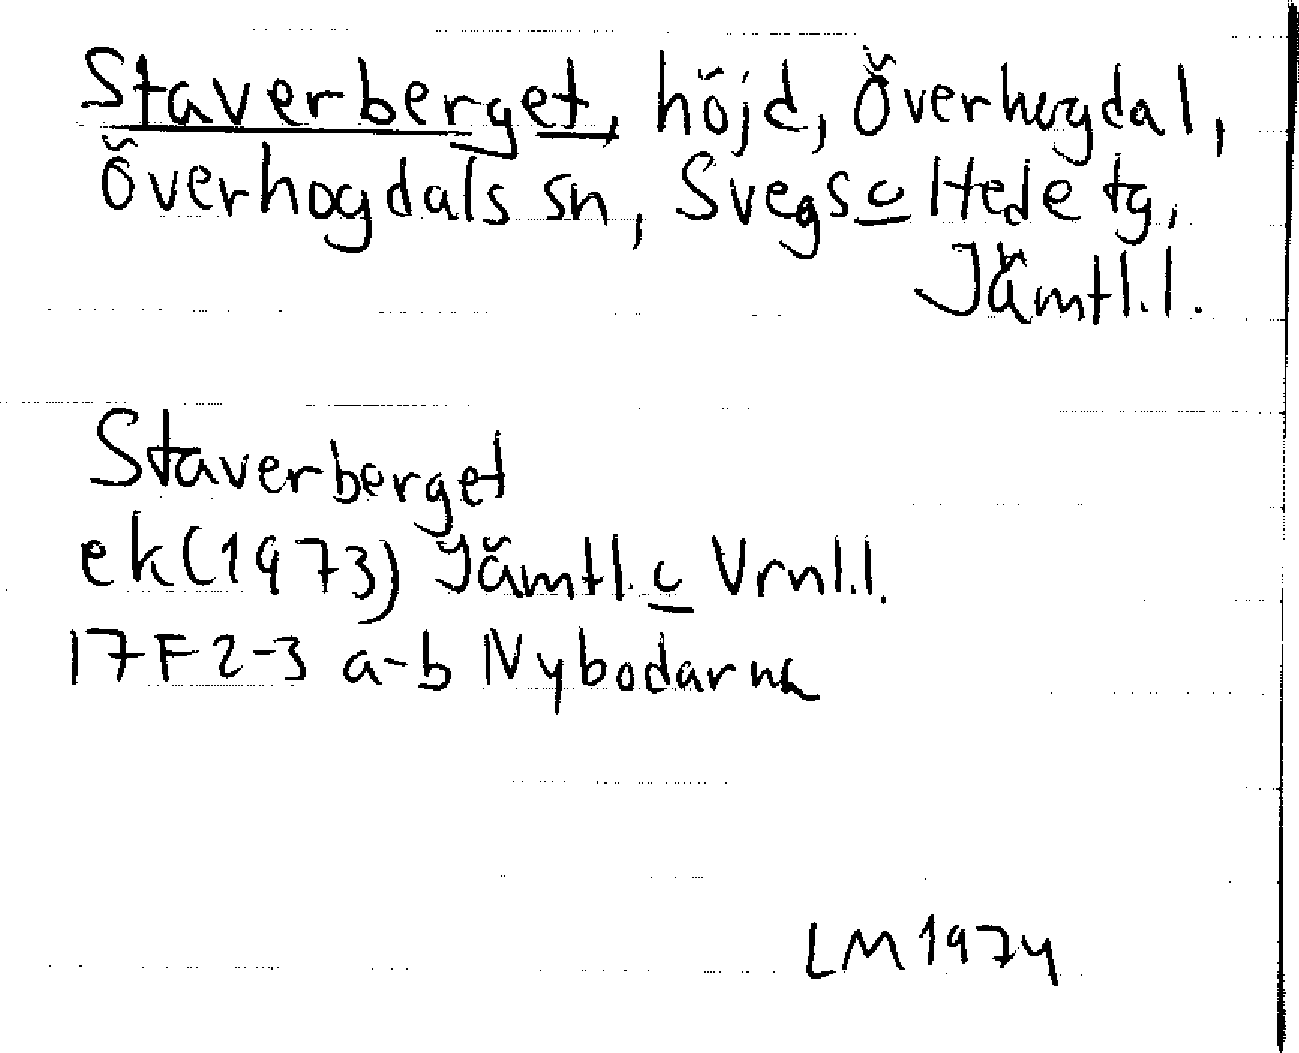 Staverberget, höjd, Överhogdal,
Överhogdals sn, Svegs o Hede tg,
Jämtl.l.
Staverberget
ek(1973) Jämtl. o Vrnl.l.
17F2-3 a-b Nybodarna
LM 1974